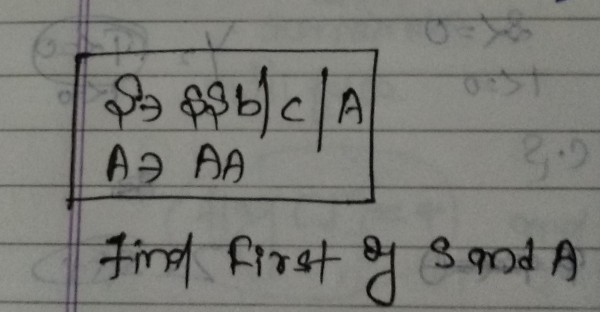 S→ SSb|c|A
A→ AA
Find First of S and A